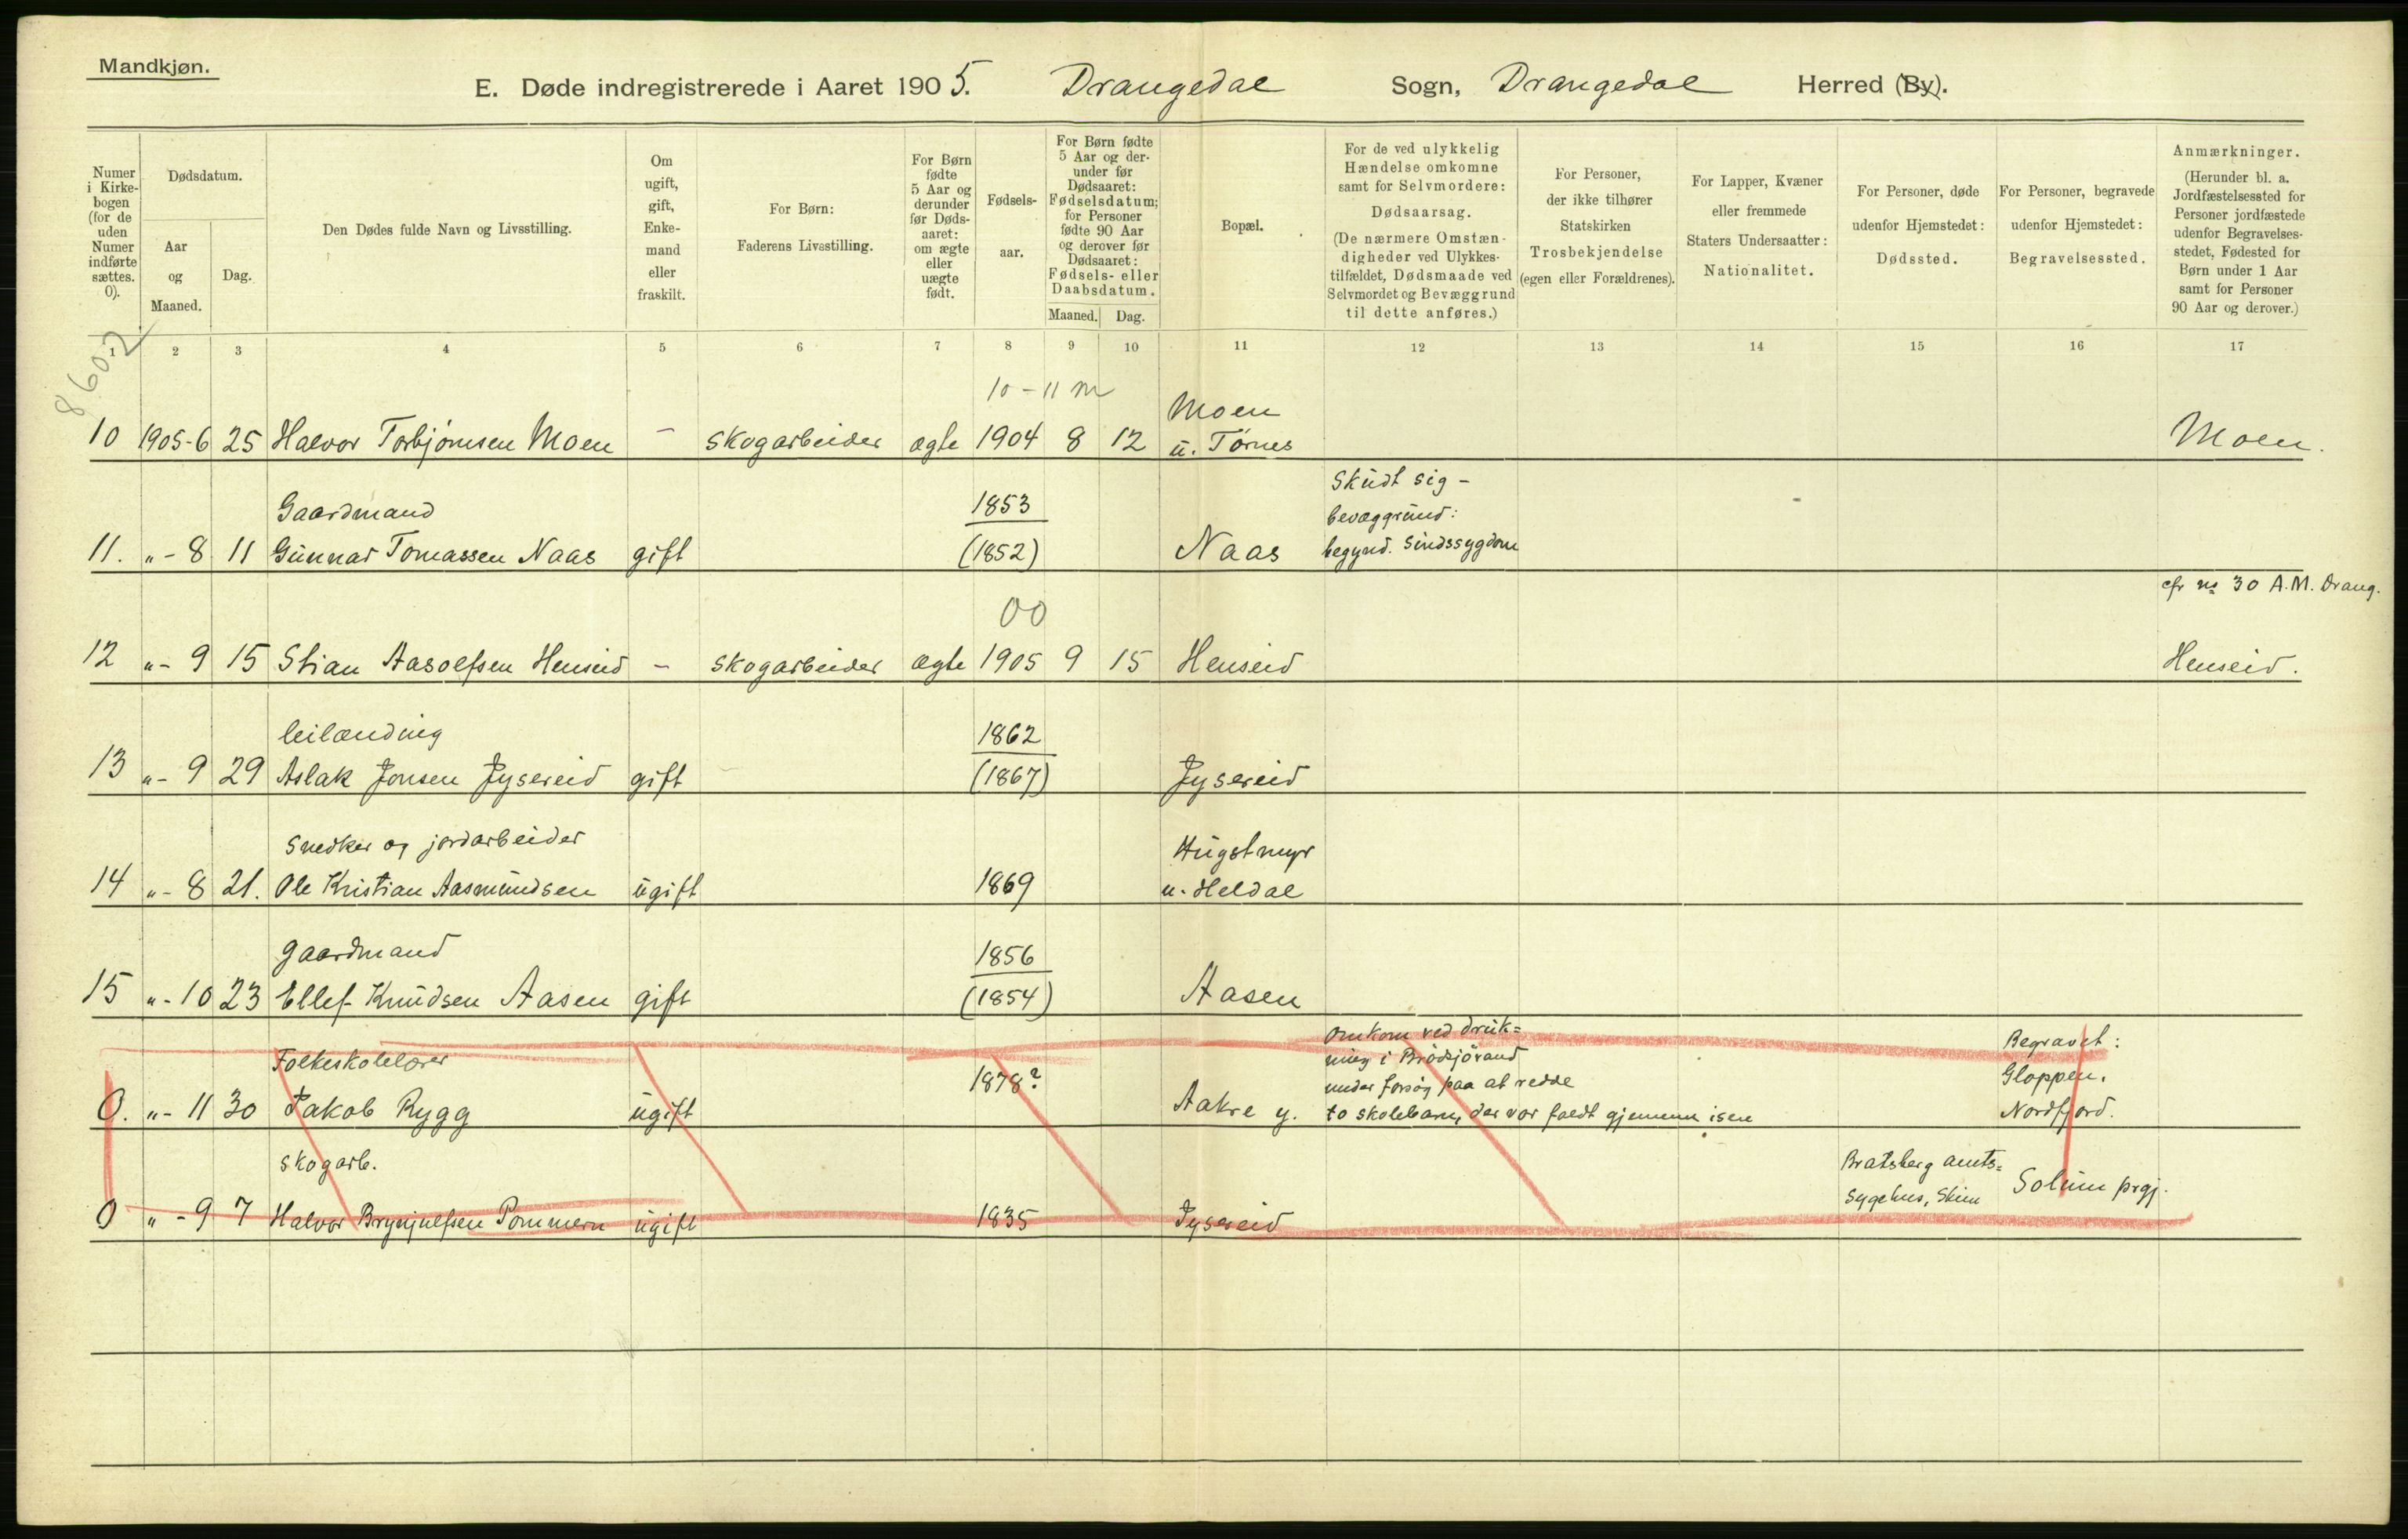 Mandkjøn.
E. Døde indregistrerede i Aaret 1905. Drangedal Sogn, Drangedal Herred (By).
Numer i Kirke-bogen (for de uden Numer indførte sættes. 0).
Dødsdatum.
Aar og Maaned.
Dag.
Den Dødes fulde Navn og Livsstilling.
Om ugift, gift, Enke-mand eller fraskilt.
For Børn: Faderens Livsstilling.
For Børn fødte 5 Aar og derunder før Døds-aaret: om ægte eller uægte født.
Fødsels-aar.
For Børn fødte 5 Aar og der-under før Dødsaaret: Fødselsdatum; for Personer fødte 90 Aar og derover før Dødsaaret: Fødsels- eller Daabsdatum.
Maaned. Dag.
Bopæl.
For de ved ulykkelig Hændelse omkomne samt for Selvmordere: Dødsaarsag. (De nærmere Omstæn-digheder ved Ulykkes-tilfældet, Dødsmaade ved Selvmordet og Bevæggrund til dette anføres.)
For Personer, der ikke tilhører Statskirken Trosbekjendelse (egen eller Forældrenes).
For Lapper, Kvæner eller fremmede Staters Undersaatter: Nationalitet.
For Personer, døde udenfor Hjemstedet: Dødssted.
For Personer, begravede udenfor Hjemstedet: Begravelsessted.
Anmærkninger. (Herunder bl. a. Jordfæstelsessted for Personer jordfæstede udenfor Begravelses-stedet, Fødested for Børn under 1 Aar samt for Personer 90 Aar og derover.)
1 2 3 4 5 6 7 8 9 10 11 12 13 14 15 16 17
8602
10 - 11 m
Moen
10 1905-6 25 Halvor Torbjørnsen Moen – skogarbeider ægte 1904 8 12 u. Tørnes Moen.
Skudt sig -
Gaardmand 1853 bevæggrund:
11. „ - 8 11 Gunnar Tomassen Naas gift (1852) Naas begynd. Sindssygdom
cfr no 30 A.M. Drang.
00
12 „ - 9 15 Stian Aasolfsen Henseid – skogarbeider ægte 1905 9 15 Henseid Henseid.
leilænding 1862
13 „ - 9 29 Aslak Jonsen Jysereid gift (1867) Jysereid
Snedker og jordarbeider Hugstmyr
14 „ - 8 21. Ole Kristian Aasmundsen ugift 1869 u. Heldal
gaardmand 1856
15 „ - 10 23 Ellef Knudsen Aasen gift (1854) Aasen
Omkom ved druk= Begravet:
Folkeskolelærer ning i
1878? under forsøg paa at redde Gloppen.
0. „ - 11 30 Jakob Rygg ugift Aakre y. to skolebarn, der var faldt gjennem isen Nordfjord.
skogarb. Bratsberg amts= Solum prgj.
0 „ - 9 7 Halvor Brynjulfsen Pommern ugift 1835 Jysereid Sygehus, Skien